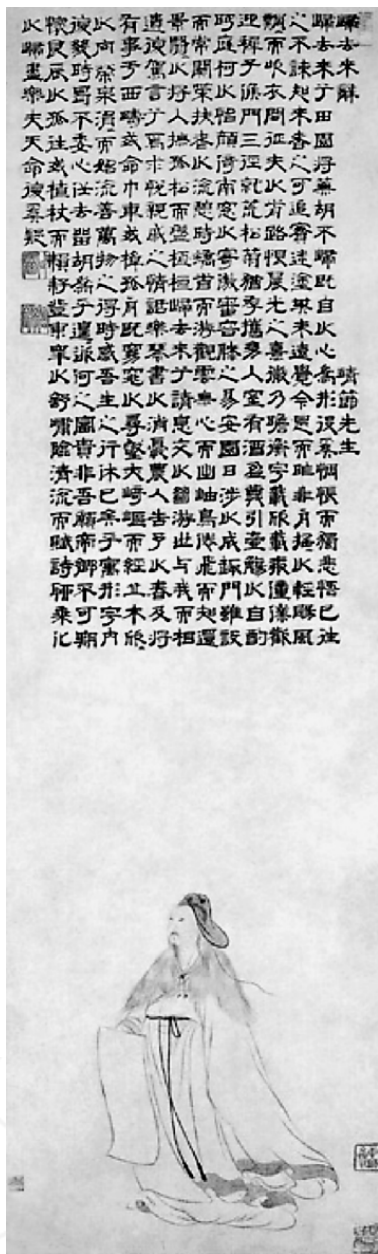 歸去來辭 靖節先生
歸去來兮田園將蕪胡不歸既自以心為形役奚惆悵而獨悲悟已往
之不諫知來者之可追實迷塗其未遠覺今是而昨非舟搖以輕颺風
飄而吹衣問征夫以前路恨晨光之熹微乃瞻衡宇載欣載奔僮僕歡
迎稚子候門三徑就荒松菊猶存攜幼入室有酒盈樽引壺觴以自酌
眄庭柯以怡顏倚南窗以寄傲審容膝之易安園日涉以成趣門雖設
而常關策扶老以流憩時矯首而遐觀雲無心而出岫鳥倦飛而知還
景翳以將入撫孤松而盤桓歸去來兮請息交以絕游世与我而相
遺復駕言兮焉求悅親戚之情話樂琴書以消憂農人告予以春及將
有事于西疇或命巾車或棹孤舟既窈窕以尋壑亦崎嶇而經丘木欣
以向榮泉涓而始流善萬物之得時感吾生之行休已矣乎寓形宇內
復幾時曷不委心任去留胡為乎遑何之富貴非吾願帝鄉不可期
懷良辰以孤往或植杖而耘耔登東皋以舒嘯臨清流而賦詩聊乘化
以歸盡樂夫天命復奚疑